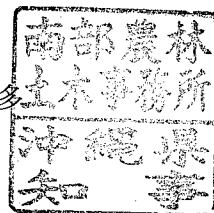 南部農林
土木事務所
沖縄県
知事